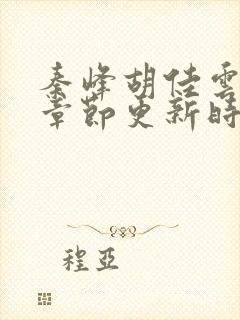 秦峰胡佳雲
章節更新時
程亞